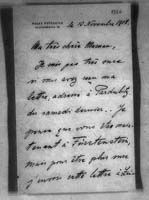 le 15 Novembre 1908.
Ma très chère Maman,
Je suis pas très sure
si vous avez eu ma
lettre, adressée à Pardubitz
du samedi dernier. Je
pense que vous êtes main-
tenant à Fürstenstein,
mais pour être plus sure
j'envoie cette lettre à